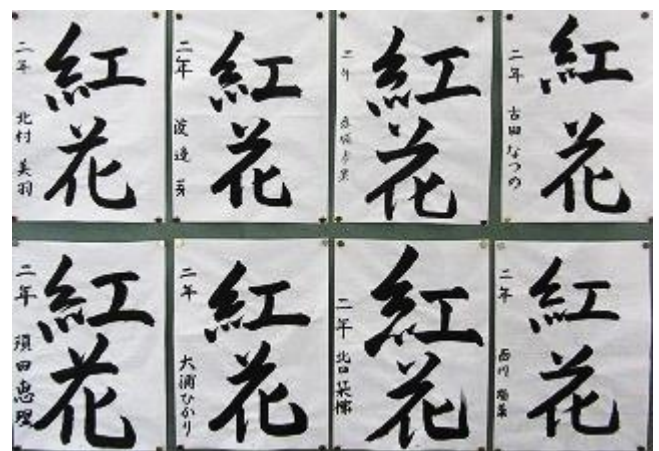 紅花
二年 北村 美羽
紅花
二年 渡邊
紅花
二年
紅花
二年 古田 なつの
紅花
二年 須田 恵理
紅花
二年 大浦ひかり
紅花
二年 北口
紅花
二年 西川